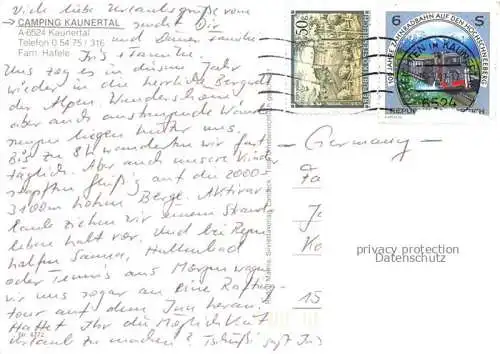 Viele liebe Urlaubsgrüße vom
CAMPING KAUNERTAL
A-6524 Kaunertal
Telefon 0 54 75 / 316
Fam. Hafele
sendet Dir
und Deiner Familie
Iris + Familie.
Uns zog es in diesem Jahr
wieder in die herrliche Bergwelt
der Alpen. Wunderschöne
aber auch anstrengende Wande-
rungen liegen hinter uns.
Bis zu 8 h wanderten wir fast
täglich. Aber auch unsere Kinder
stapften fleißig auf die 2000-
3100m hohen Berge. Aktivur-
laub ziehen wir einem Strand-
leben halt vor. Und bei Regen
halfen Sauna, Hallenbad
oder Tennis aus. Morgen wagen
wir uns sogar an eine Rafting-
tour auf dem Inn heran.
Hattet Ihr die Möglichkeit
Urlaub zu machen? Tschüß! sagt Iris
Nr. 4772
50g
6 S
100 JAHRE ZAHNRADBAHN AUF DEN HOCHSCHNEEBERG
REPUBLIK
6524
- Germany -
Ja
Ko
15
privacy protection
Datenschutz